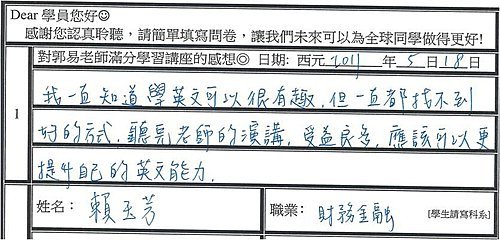 Dear 學員您好☺
感謝您認真聆聽，請簡單填寫問卷，讓我們未來可以為全球同學做得更好!
對郭易老師滿分學習講座的感想◎ 日期: 西元 2011 年 5 日 18 日
1
我一直知道學英文可以很有趣，但一直都找不到
好的方式，聽完老師的演講，受益良多，應該可以更
提升自己的英文能力。
姓名： 賴玉芳 職業： 財務金融 [學生請寫科系]